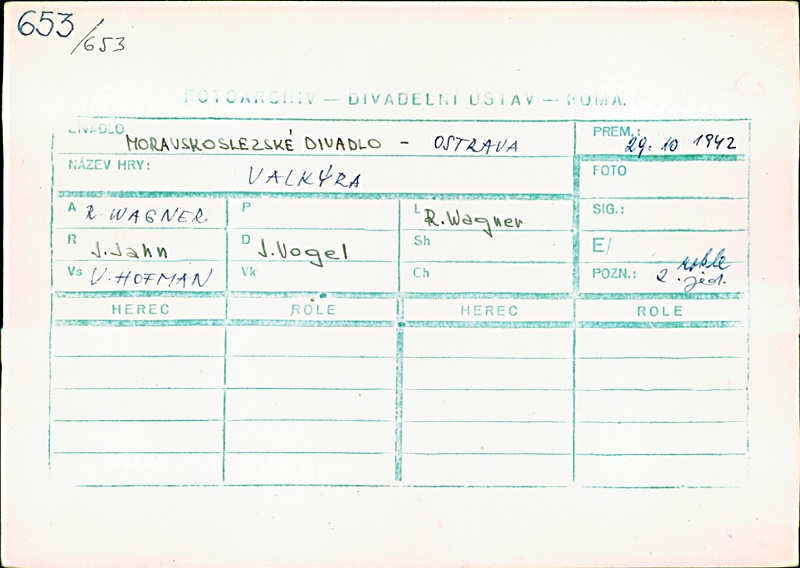 653
/653
FOTOARCHIV — DIVADELNÍ ÚSTAV — POMA.
DIVADLO MORAVSKOSLEZSKÉ DIVADLO - OSTRAVA
PREM.: 29. 10 1942
NÁZEV HRY: VALKÝRA
FOTO
A R. WAGNER P L R. Wagner SIG.:
R J. Jahn D J. Vogel Sh E/
Vs V. HOFMAN Vk Ch POZN.: 2. jed.
HEREC ROLE HEREC ROLE